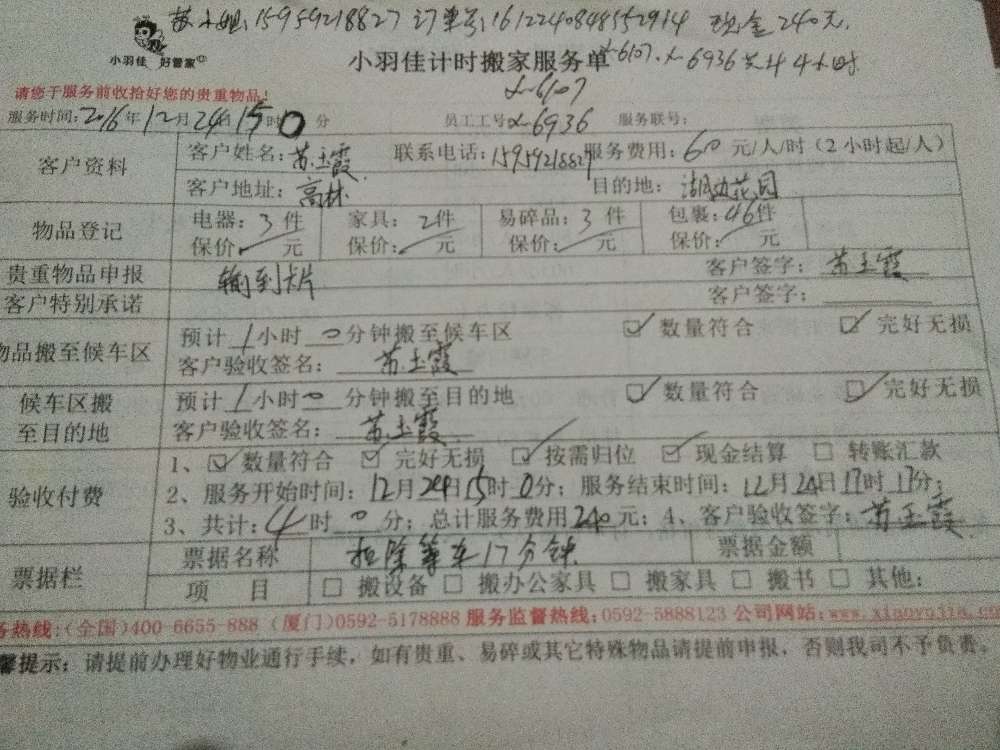 苏小姐:15959218827 订单号:1612240848552914 现金240元.
小羽佳 好管家
小羽佳计时搬家服务单 x-6107.x-6936共4小时
请您于服务前收拾好您的贵重物品!
x-6107
服务时间:2016年12月24日15时0分 员工工号x-6936 服务联号:
客户资料 客户姓名:苏玉霞 联系电话:15959218827 服务费用:60元/人/时(2小时起/人)
客户地址:高林 目的地:湖边花园
物品登记 电器:3件 家具:2件 易碎品:3件 包裹:46件
保价: 元 保价: 元 保价: 元 保价: 元
贵重物品申报 输到卡片 客户签字:苏玉霞
客户特别承诺 客户签字:
物品搬至候车区 预计1小时0分钟搬至候车区 ☑数量符合 ☑完好无损
客户验收签名:苏玉霞
候车区搬至目的地 预计1小时0分钟搬至目的地 ☑数量符合 ☑完好无损
客户验收签名:苏玉霞
验收付费 1、☑数量符合 ☑完好无损 ☑按需归位 ☑现金结算 □转账汇款
2、服务开始时间:12月24日15时0分;服务结束时间:12月24日17时17分;
3、共计:4时0分;总计服务费用240元;4、客户验收签字:苏玉霞
票据栏 票据名称 扣除等车17分钟 票据金额
项 目 □搬设备 □搬办公家具 □搬家具 □搬书 □其他:
务热线:(全国)400-6655-888 (厦门)0592-5178888 服务监督热线:0592-5888123 公司网站:www.xiaoyujia.co
馨提示:请提前办理好物业通行手续,如有贵重、易碎或其它特殊物品请提前申报,否则我司不予负责。